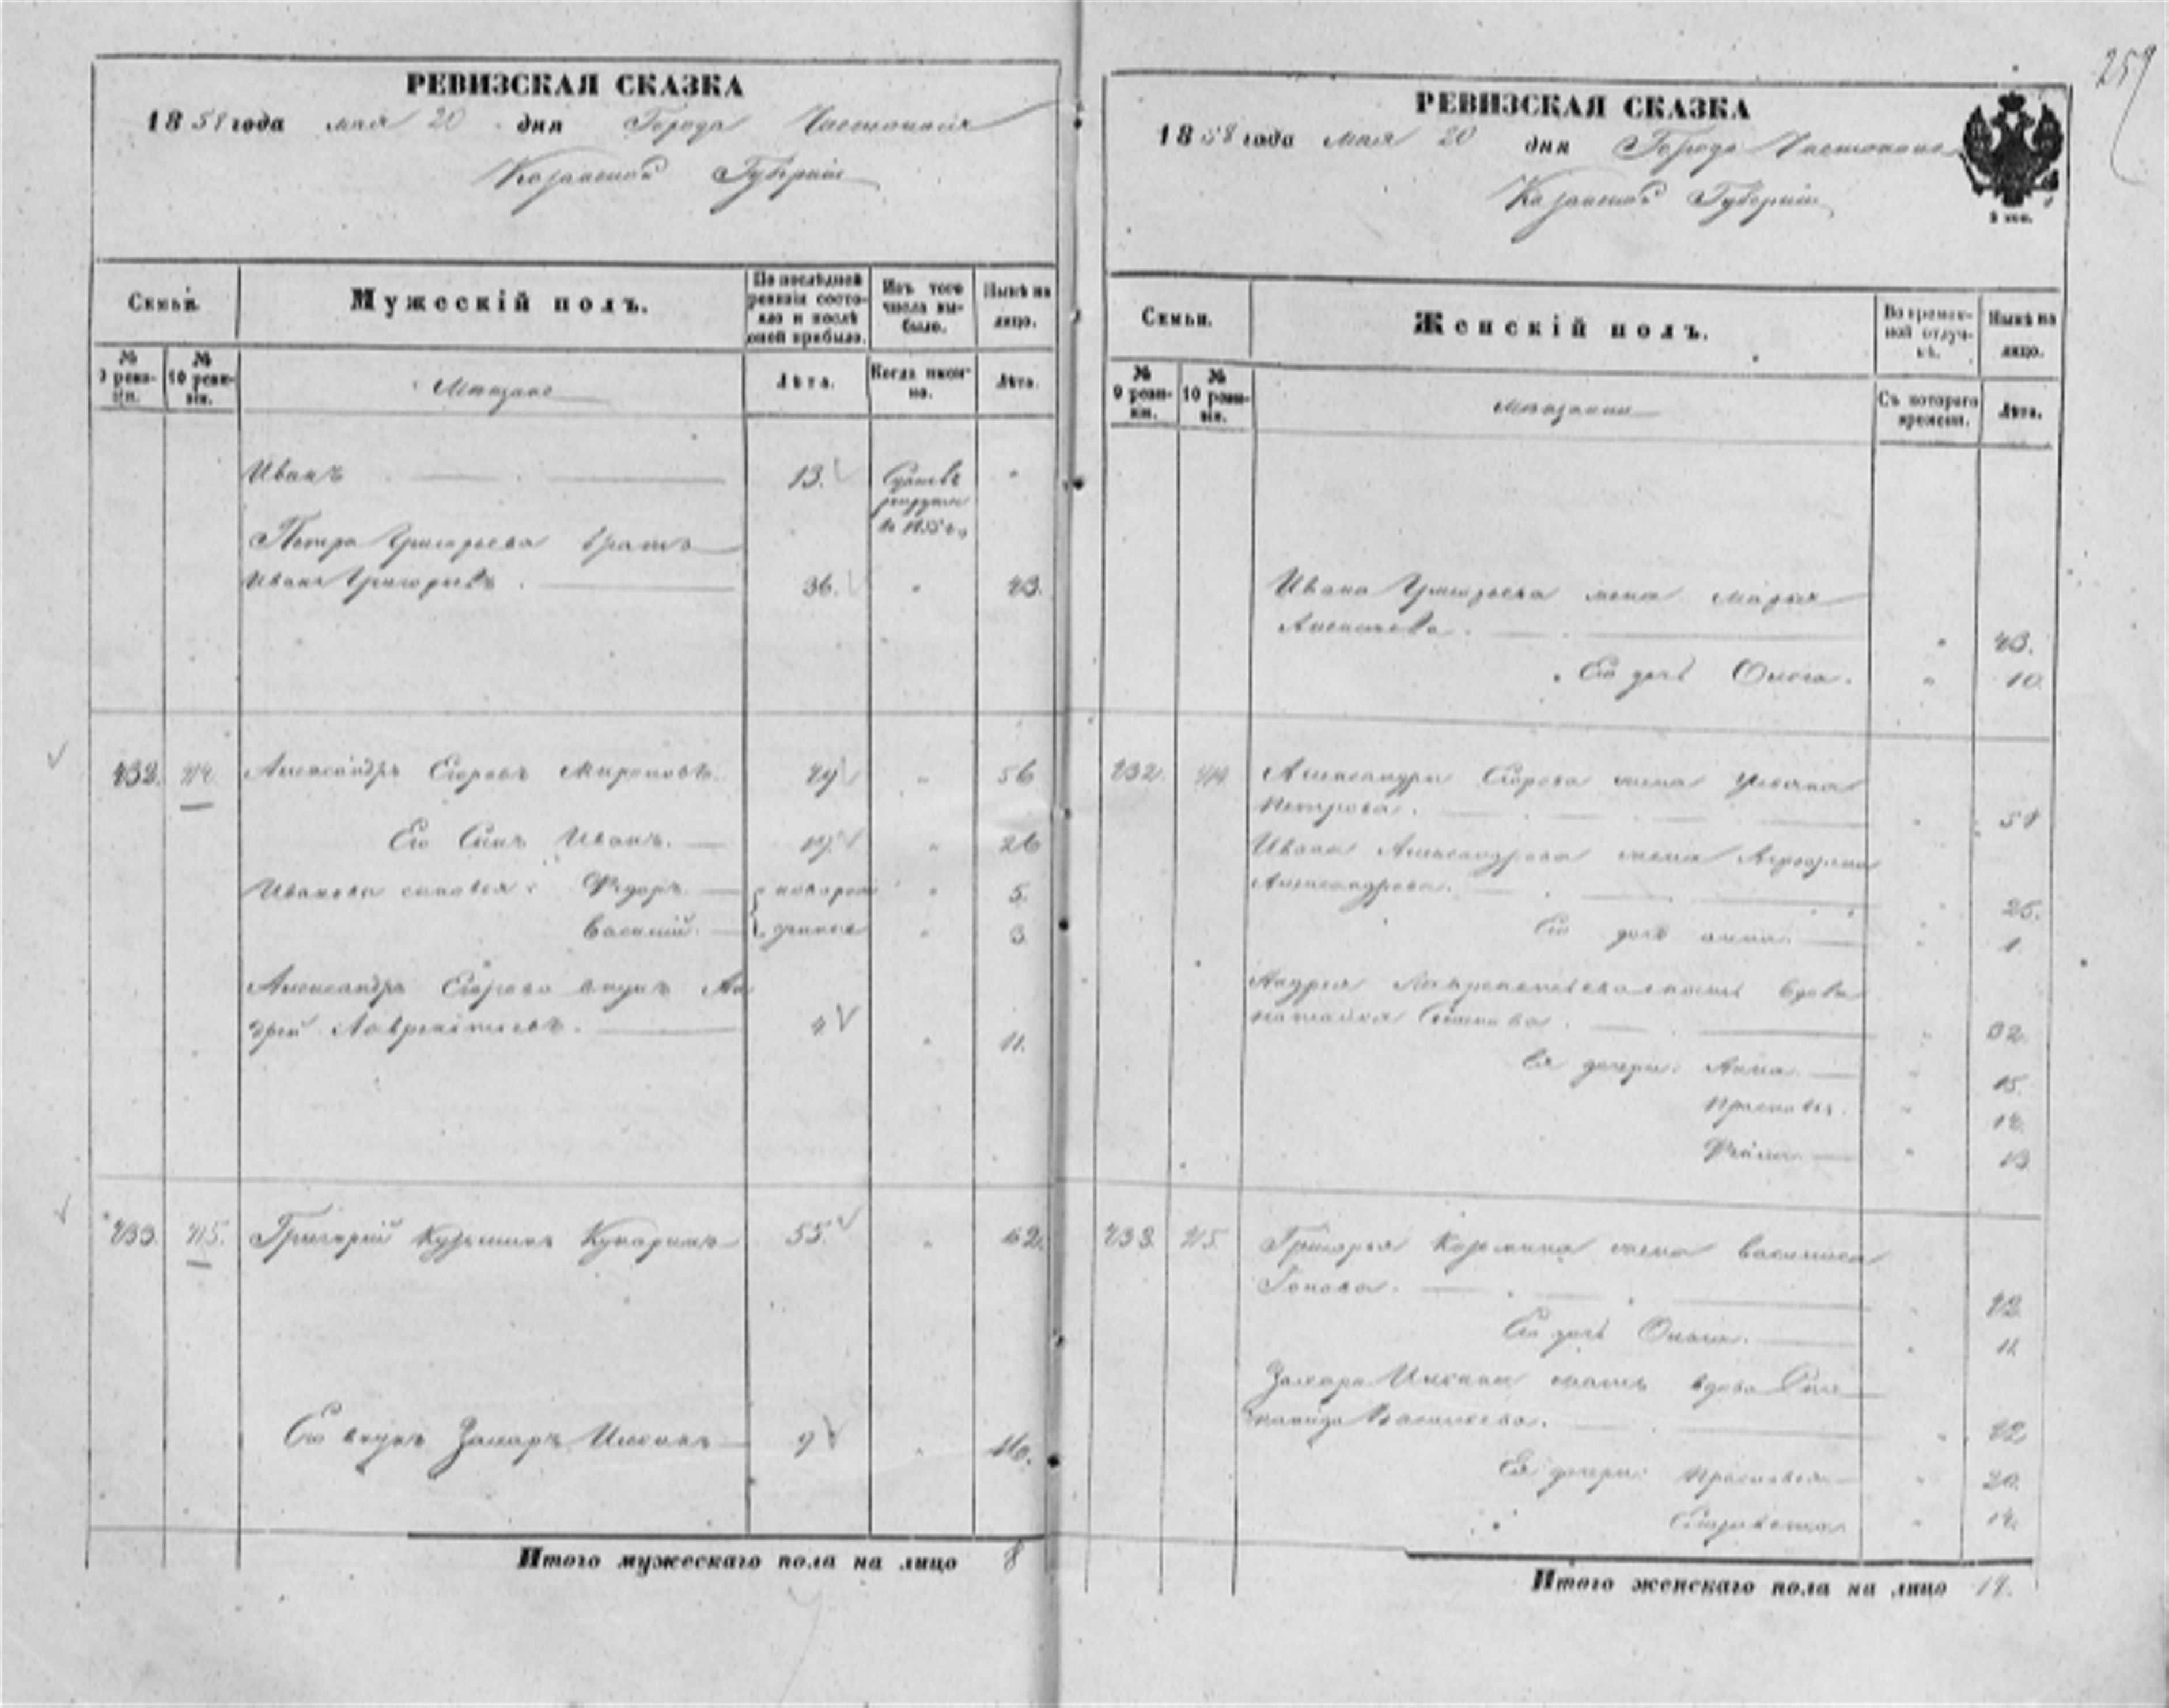 259
РЕВИЗСКАЯ СКАЗКА
1858 года мая 20 дня Города Чистополя
Казанской Губерніи
Семьи.
Мужескій полъ.
По послѣдней ревизіи состояло и послѣ оной прибыло.
Изъ того числа выбыло.
Нынѣ на лицо.
№ 9 ревизіи.
№ 10 ревизіи.
Мѣщане
Лѣта.
Когда именно.
Лѣта.
Иванъ 13. "
рекруты
в 1855 г.
Петра Григорьева братъ
Иванъ Григорьевъ. 36. " 43.
432. 414. Александръ Егоровъ Мироновъ. 49 " 56
Его Сынъ Иванъ. 19. " 26
Ивановы сыновья: Федоръ " 5.
Василій. " 3
новорожденные
Александра Егорова внукъ Ан
дрей Лаврентьевъ. 4 " 11.
433. 415. Григорій Кузьминъ 55. " 62.
Его внукъ Захаръ 9 " 16.
Итого мужескаго пола на лицо 8
РЕВИЗСКАЯ СКАЗКА
1858 года мая 20 дня Города Чистополя
Казанской Губерніи
Семьи.
Женскій полъ.
Во временной отлучкѣ.
Нынѣ на лицо.
№ 9 ревизіи.
№ 10 ревизіи.
Мѣщанки
Съ котораго времени.
Лѣта.
Ивана Григорьева жена Марья
Алексѣева. " 43.
Его дочь " 10.
432. 414. Александра Егорова жена Ульяна
Петрова. " 51
Ивана Александрова жена
Александрова. " 25.
Его дочь Анна. " 1.
Андрея Лаврентьева мать вдова
" 32.
Ея дочери: Анна " 15.
Прасковья. " 14.
" 13
433. 415. Григорья Козьмина жена Василиса
" 42
Его дочь " 11.
Захара мать вдова
Васильева. " 42
Ея дочери: Прасковья " 20.
" 14.
Итого женскаго пола на лицо 14.